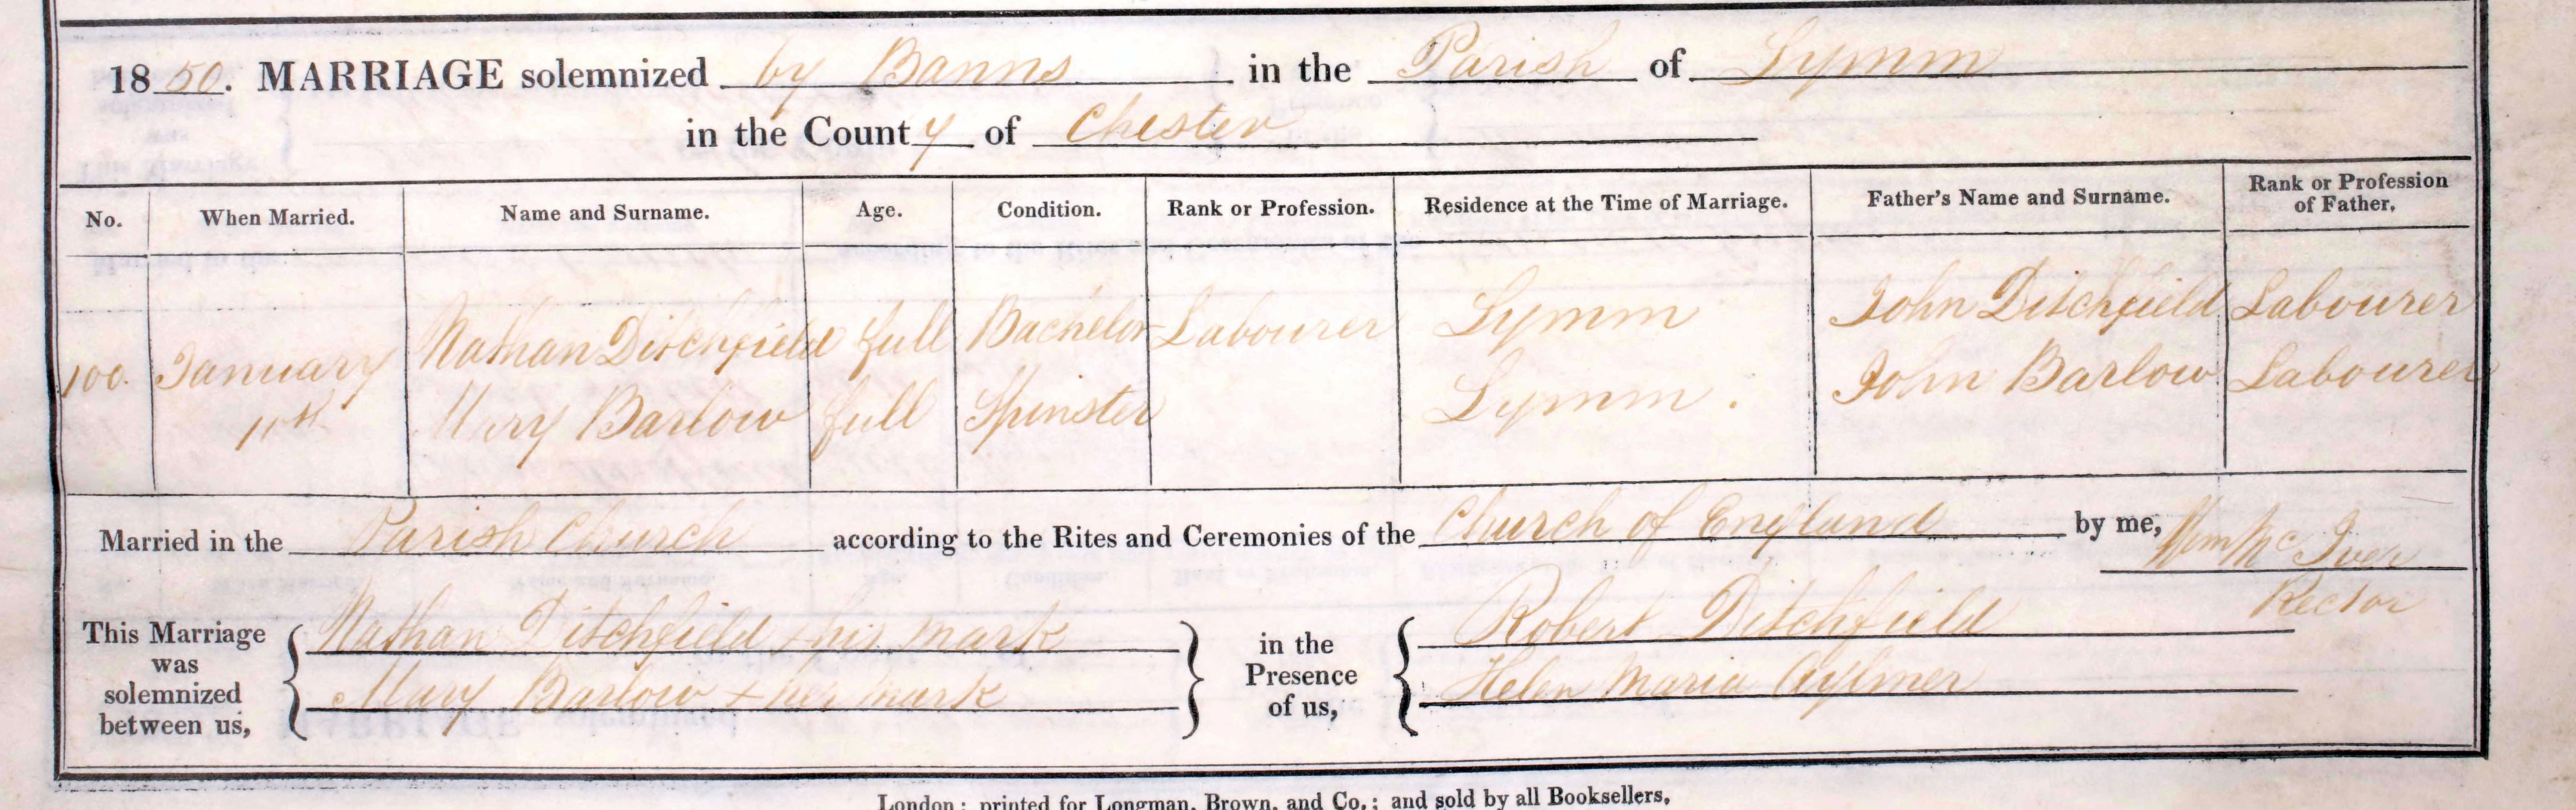 1850. MARRIAGE solemnized by Banns in the Parish of Lymm
in the County of Chester
No. When Married. Name and Surname. Age. Condition. Rank or Profession. Residence at the Time of Marriage. Father's Name and Surname. Rank or Profession of Father.
100. January 11th Nathan Ditchfield full Bachelor Labourer Lymm John Ditchfield Labourer
Mary Barlow full Spinster Lymm. John Barlow Labourer
Married in the Parish Church according to the Rites and Ceremonies of the Church of England by me, Wm McIver
Rector
This Marriage was solemnized between us, Nathan Ditchfield his mark
Mary Barlow + her mark
in the Presence of us, Robert Ditchfield
Helen Maria Aylmer
London: printed for Longman, Brown, and Co.; and sold by all Booksellers,